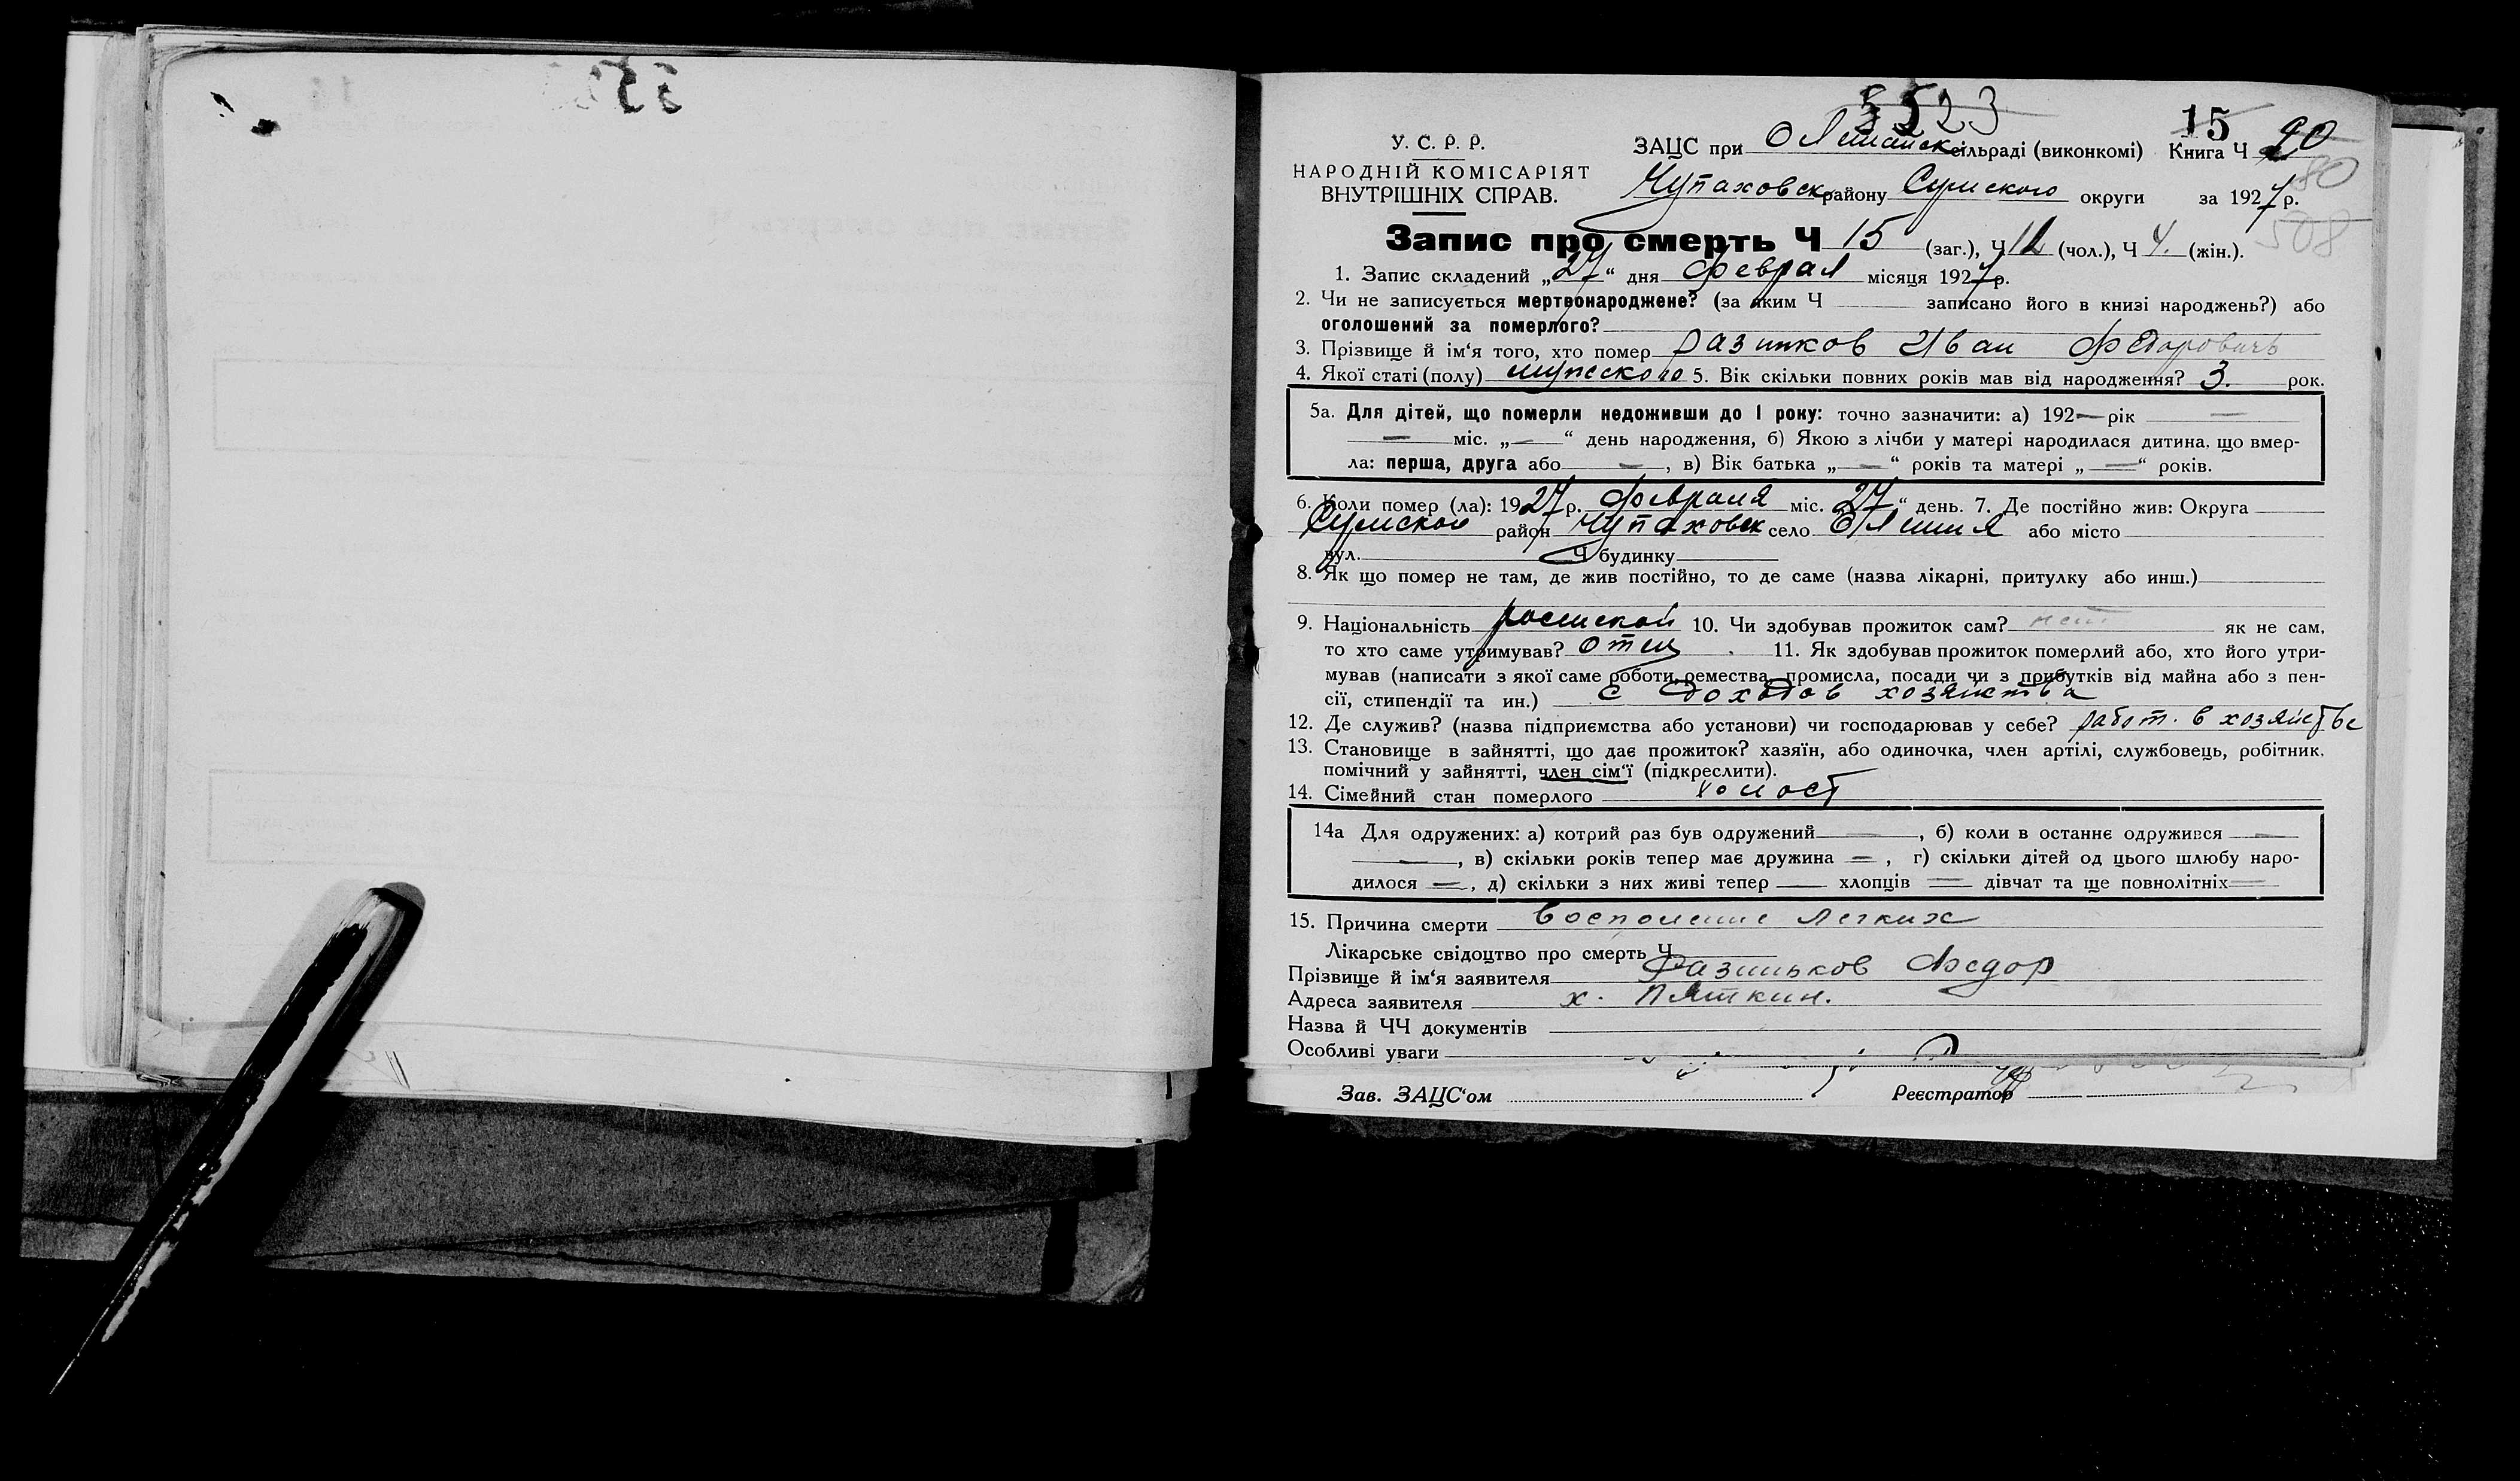 5523
15
У. С. Р. Р.
ЗАЦС при Олешанск сільраді (виконкомі) Книга Ч 20
80
НАРОДНІЙ КОМІСАРІЯТ
ВНУТРІШНІХ СПРАВ.
Чупаховск району Сумского округи за 1927 р.
508
Запис про смерть Ч 15 (заг.), Ч 11 (чол.), Ч 4. (жін.).
1. Запис складений „27“ дня Феврал місяця 1927 р.
2. Чи не записується мертвонароджене? (за яким Ч записано його в книзі народжень?) або
оголошений за померлого?
3. Прізвище й ім‘я того, хто помер Разинков Иван Федоровичь
4. Якої статі (полу) мужеского 5. Вік скільки повних років мав від народження? 3. рок.
5а. Для дітей, що померли недоживши до 1 року: точно зазначити: а) 192— рік —
— міс. „—“ день народження, б) Якою з лічби у матері народилася дитина, що вмер-
ла: перша, друга або —, в) Вік батька „—“ років та матері „—“ років.
6. Коли помер (ла): 1927 р. Февраля міс. 27“ день. 7. Де постійно жив: Округа
Сумской район Чупаховск село Олешня або місто
вул. Ч будинку
8. Як що помер не там, де жив постійно, то де саме (назва лікарні, притулку або инш.)
9. Національність росииской 10. Чи здобував прожиток сам? нет як не сам,
то хто саме утримував? отец 11. Як здобував прожиток померлий або, хто його утри-
мував (написати з якої саме роботи, ремества, промисла, посади чи з прибутків від майна або з пен-
сії, стипендії та ин.) с доходов хозяйства
12. Де служив? (назва підприємства або установи) чи господарював у себе? работ. в хозяйстве
13. Становище в зайнятті, що дає прожиток? хазяїн, або одиночка, член артілі, службовець, робітник,
помічний у зайнятті, член сім‘ї (підкреслити).
14. Сімейний стан померлого холост
14а Для одружених: а) котрий раз був одружений —, б) коли в останнє одружився —
—, в) скільки років тепер має дружина —, г) скільки дітей од цього шлюбу наро-
дилося —, д) скільки з них живі тепер — хлопців — дівчат та ще повнолітніх —
15. Причина смерти Восполение легких
Лікарське свідоцтво про смерть Ч
Прізвище й ім‘я заявителя Разиньков Федор
Адреса заявителя х. Пяткин.
Назва й ЧЧ документів
Особливі уваги
Зав. ЗАЦС‘ом Реєстратор